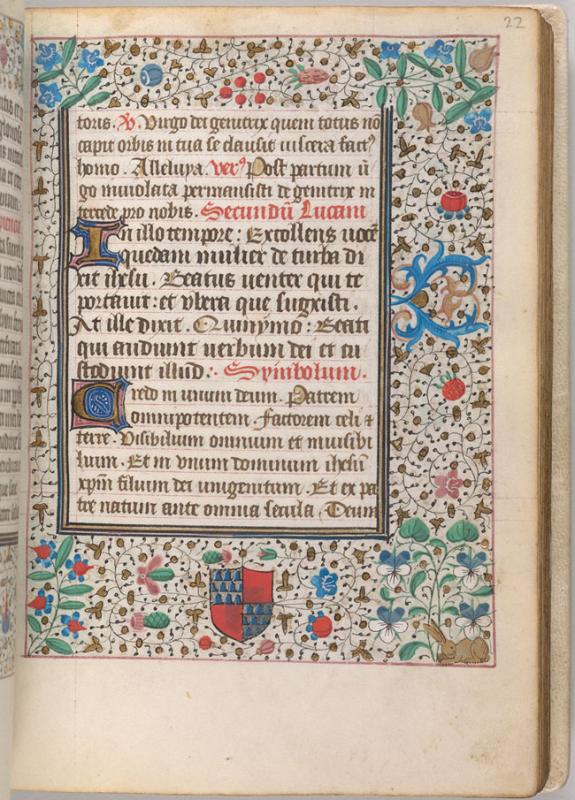 22
toris. V. Virgo dei genitrix quem totus nõ
capit orbis in tua se clausit uiscera fact9
homo. Alleluya. vers9 Post partum ũ
go inuiolata permansisti dei genitrix in
tercede pro nobis. Secundũ Lucam
In illo tempore: Extollens uocẽ
quedam mulier de turba di
xit ihesu. Beatus uenter qui te
portauit: et vbera que suxisti.
At ille dixit. Quinymo: Beati
qui audiunt uerbum dei et cu
stodiunt illud. Symbolum.
Credo in unum deum. Patrem
omnipotentem. factorem celi ⁊
terre. Visibilium omnium et inuisibi
lium. Et in vnum dominum ihesũ
xpm̃ filium dei unigenitum. Et ex pa
tre natum ante omnia secula. Deum